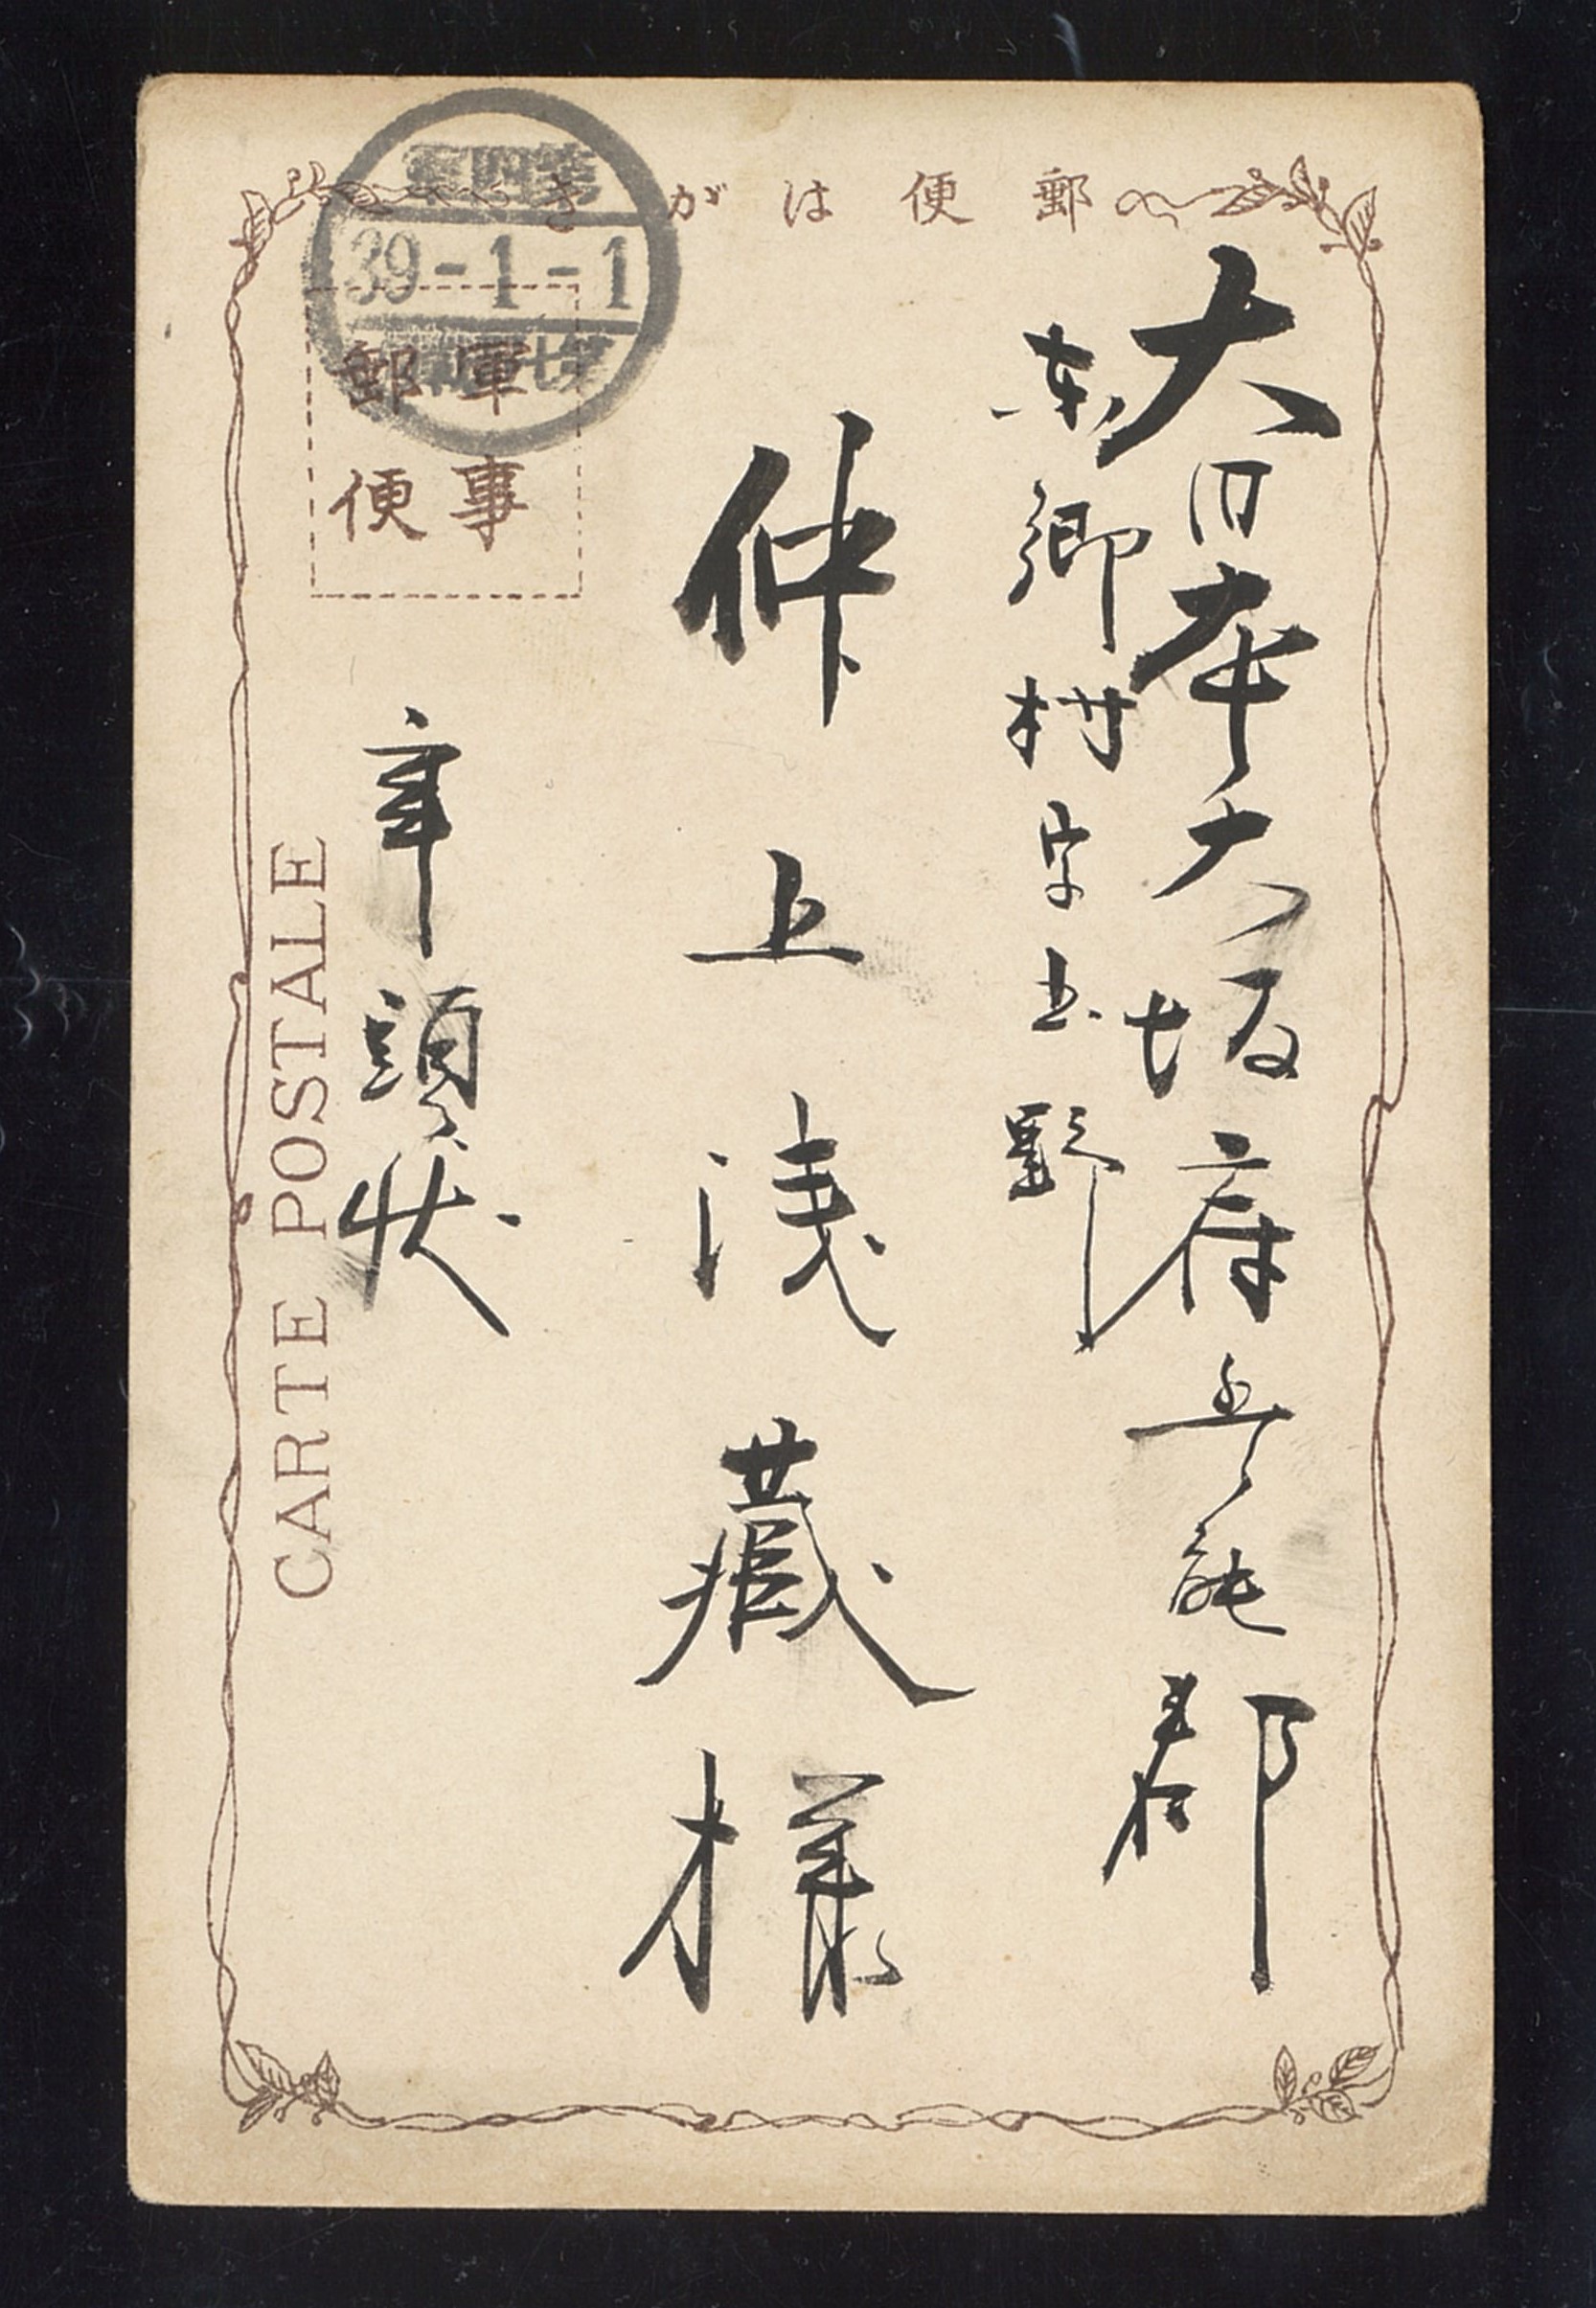 郵便はがき
大日本大坂府豊能郡
東郷村字野
仲上浅蔵様
年頭状
軍事
郵便
39-1-1
CARTE POSTALE